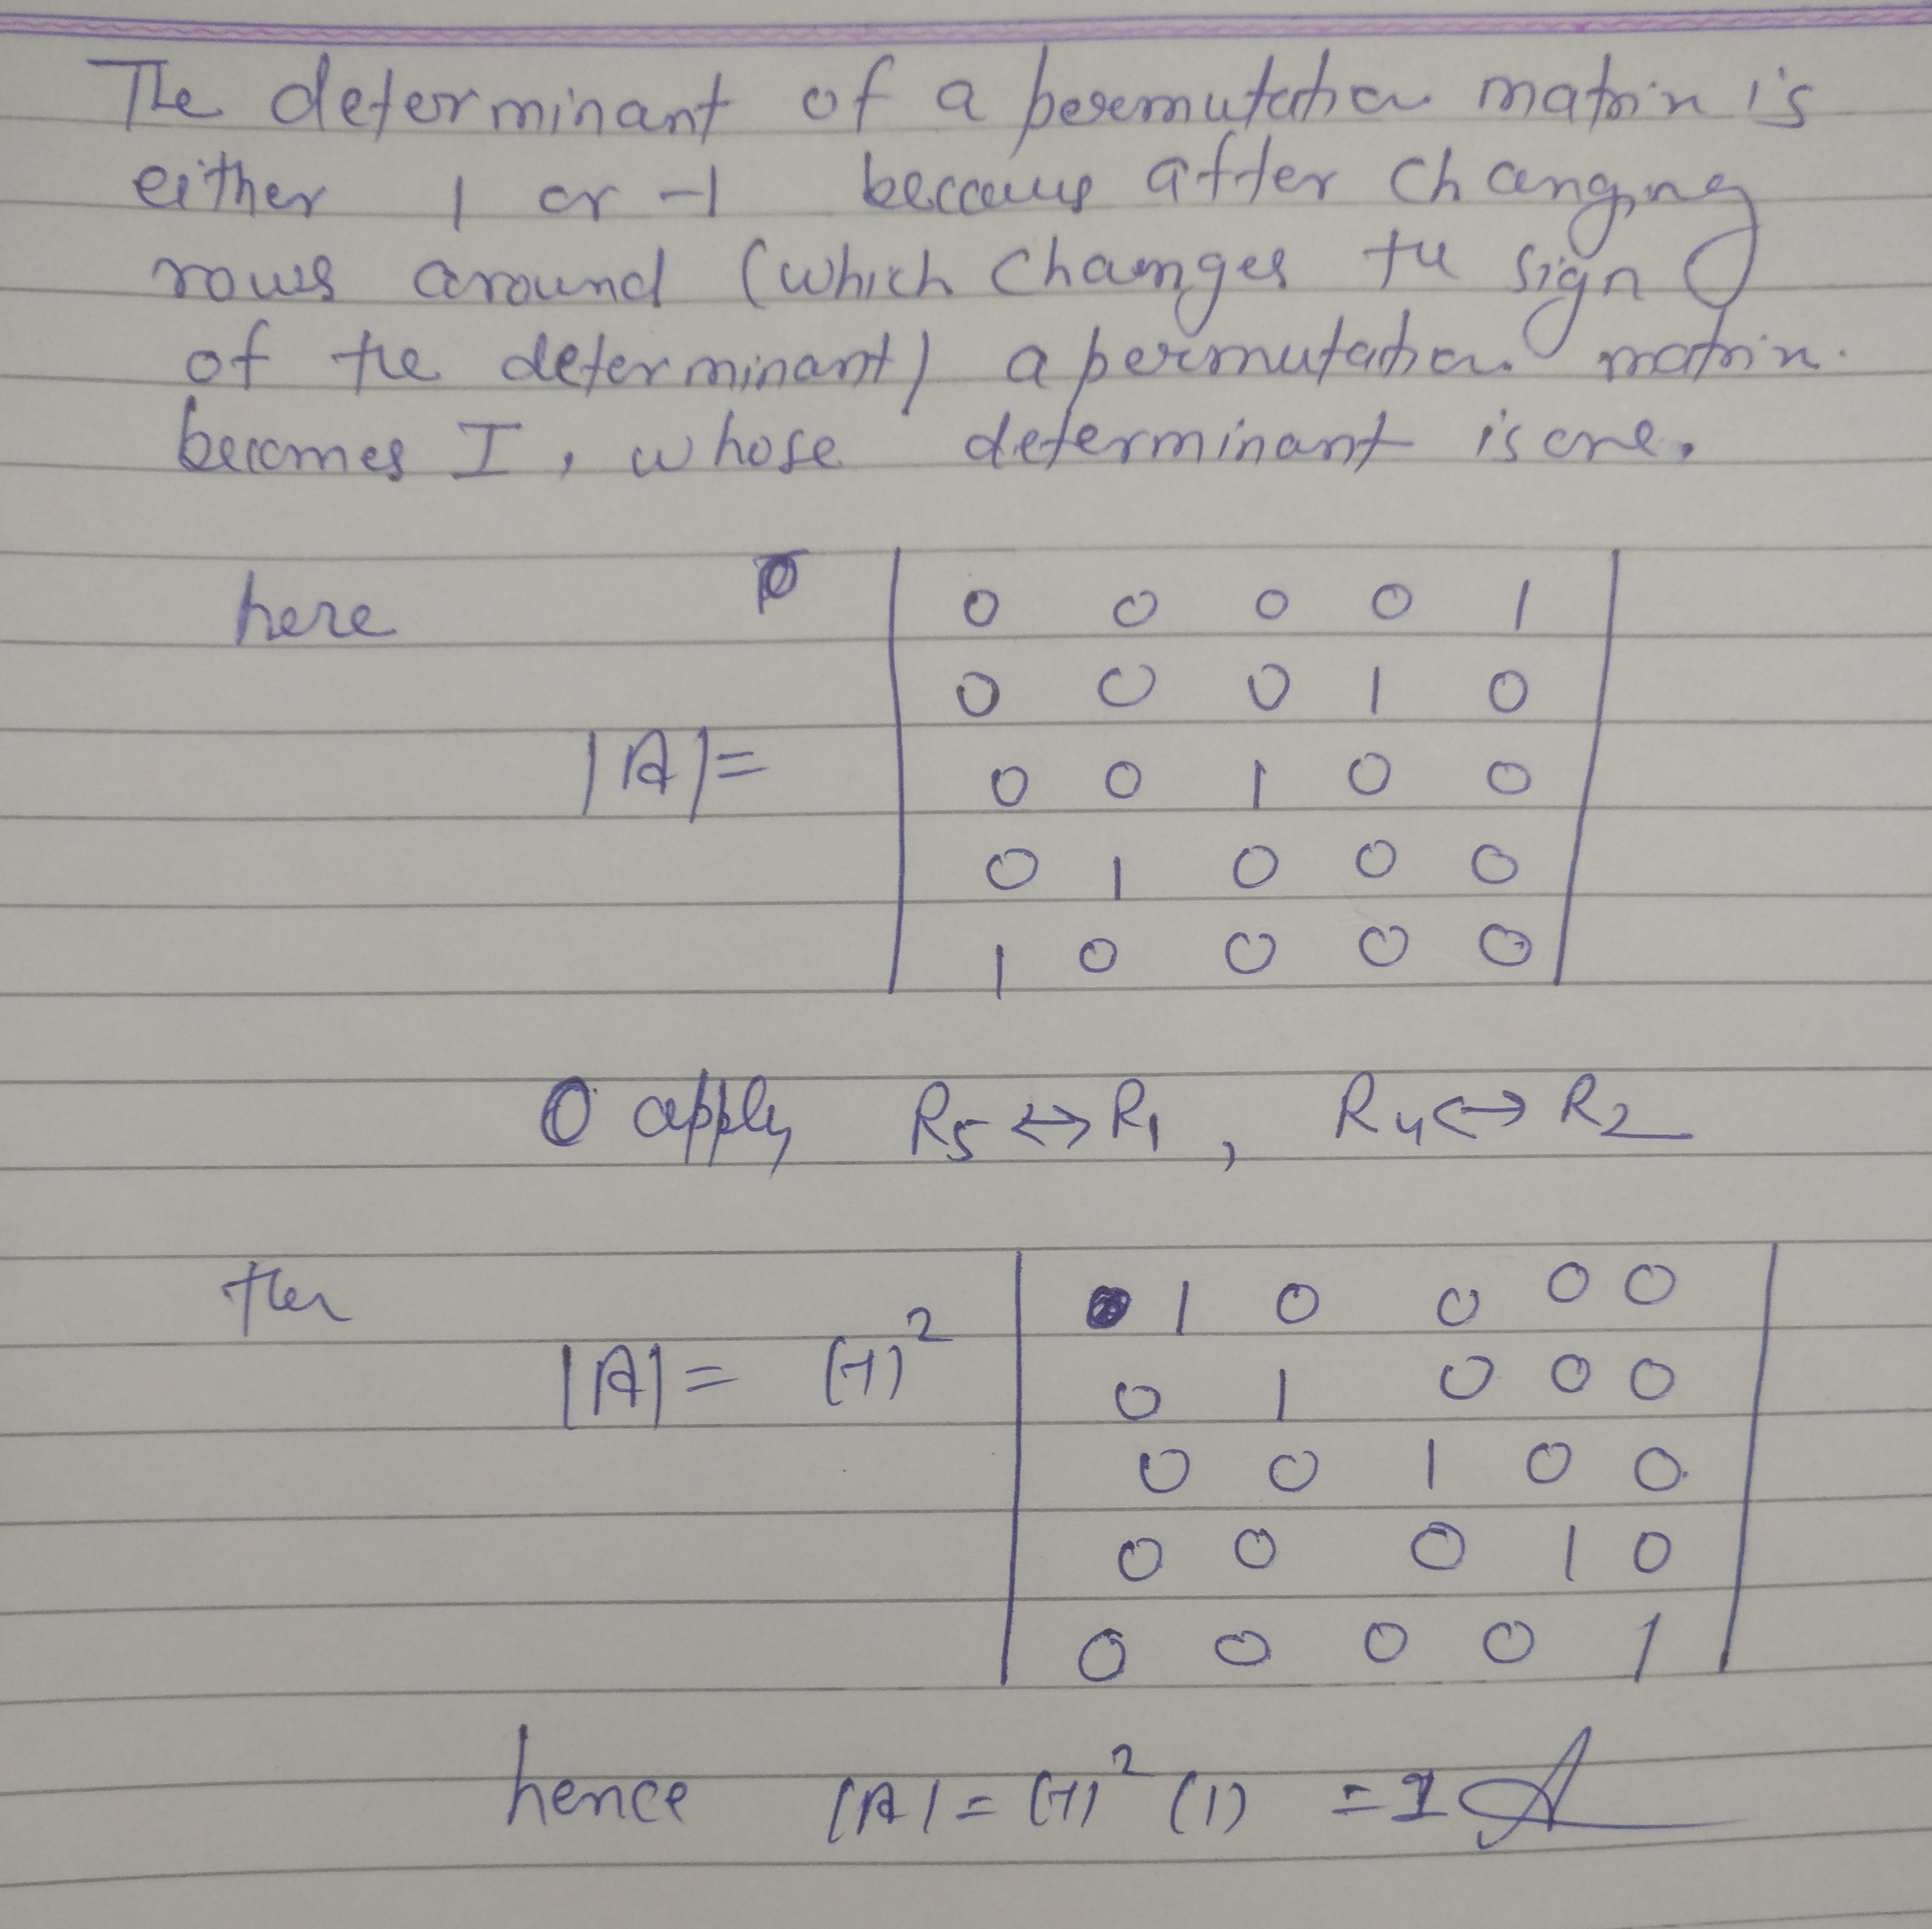 The determinant of a permutation matrix is
either 1 or -1 because after changing
rows around (which changes the sign
of the determinant) a permutation matrix.
becomes I, whose determinant is one.
here
| 0 0 0 0 1 |
| 0 0 0 1 0 |
|A| = | 0 0 1 0 0 |
| 0 1 0 0 0 |
| 1 0 0 0 0 |
apply R5 ↔ R1, R4 ↔ R2
then
| 1 0 0 0 0 |
|A| = (-1)² | 0 1 0 0 0 |
| 0 0 1 0 0 |
| 0 0 0 1 0 |
| 0 0 0 0 1 |
hence |A| = (-1)² (1) = 1